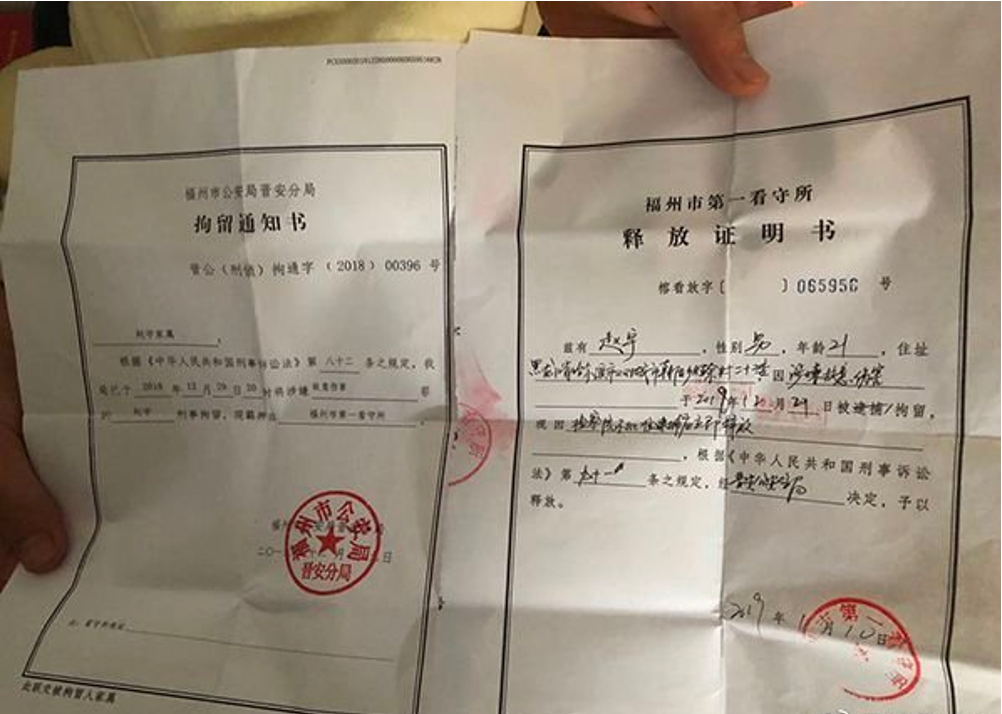 福州市公安局晋安分局
拘留通知书
晋公（刑侦）拘通字（2018）00396 号
赵宇家属，
根据《中华人民共和国刑事诉讼法》第 八十二 条之规定，我
局已于 2018 年 12 月 29 日 20 时将涉嫌 故意伤害 罪
的 赵宇 刑事拘留，现羁押在 福州市第一看守所 。
福州市公安局
晋安分局
此联交被拘留人家属
福州市第一看守所
释放证明书
榕看放字〔 〕065950 号
兹有 赵宇 ，性别 男 ，年龄 21 ，住址
黑龙江省哈尔滨市 ，因 涉嫌故意伤害
于 年 12 月 29 日被逮捕/拘留，
现因 释放
，根据《中华人民共和国刑事诉讼
法》第 条之规定，经 晋安公安分局 决定，予以
释放。
2019 年 1 月 10 日